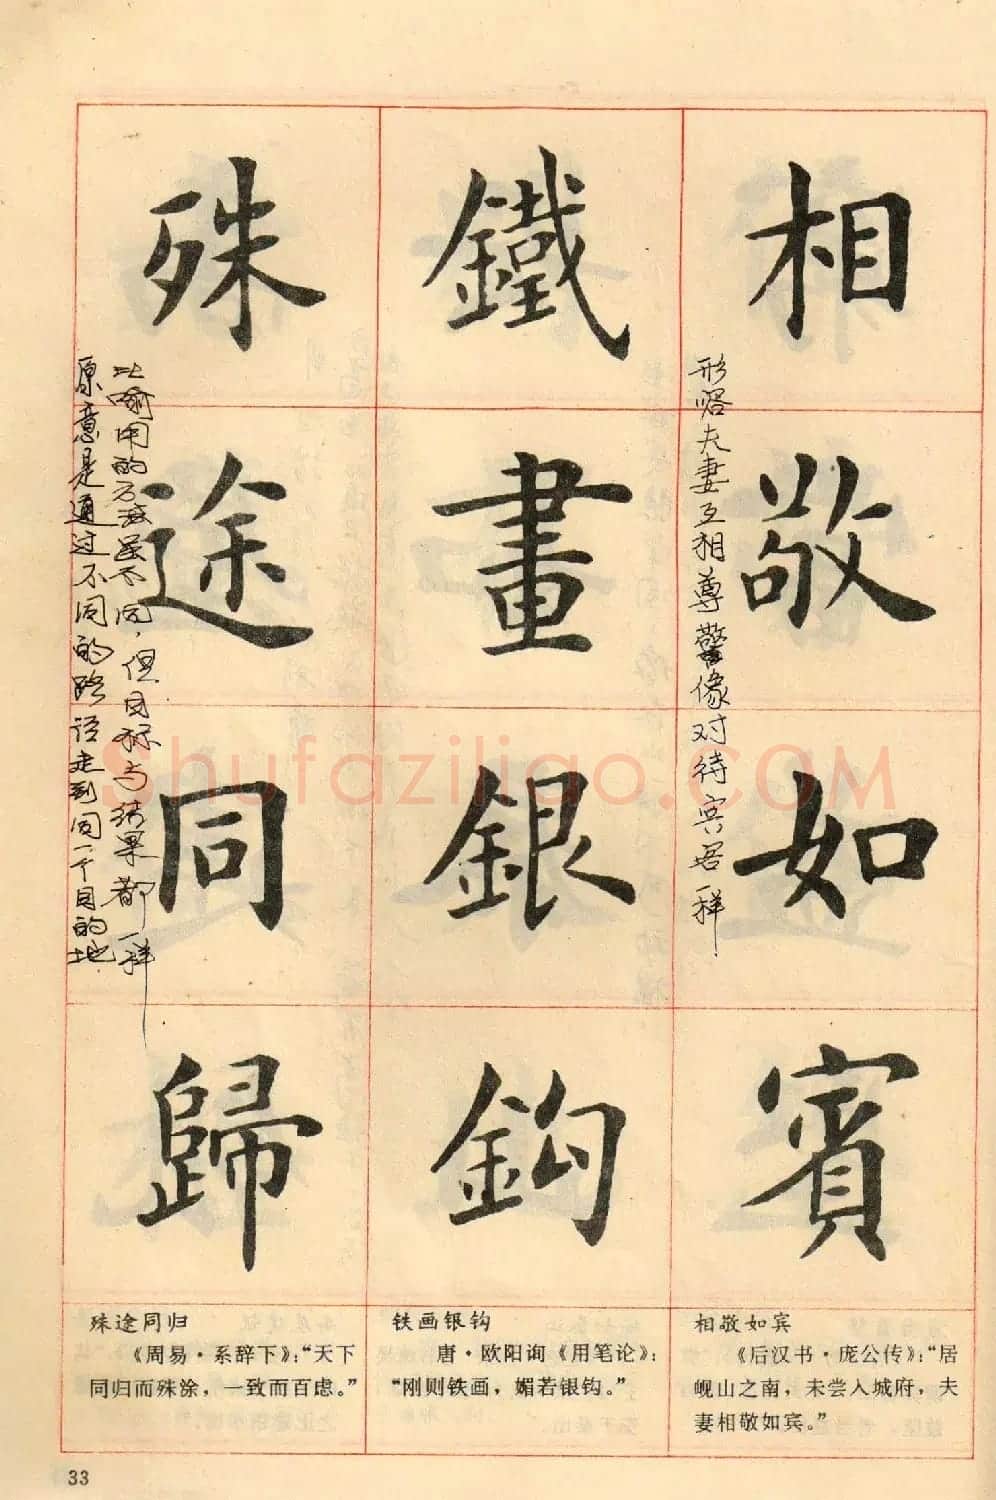 相敬如賓
鐵畫銀鈎
殊途同歸
形容夫妻互相尊警像对待宾客一样
比喻用的方法虽不同，但目标与结果都一样
原意是通过不同的路径走到同一个目的地
Shufaziliao.COM
殊途同归
《周易·系辞下》：“天下
同归而殊涂，一致而百虑。”
铁画银钩
唐·欧阳询《用笔论》：
“刚则铁画，媚若银钩。”
相敬如宾
《后汉书·庞公传》：“居
岘山之南，未尝入城府，夫
妻相敬如宾。”
33